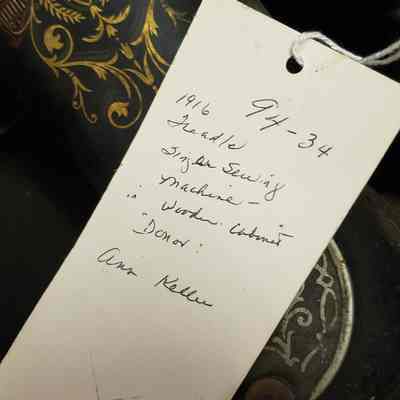 94-34
1916
Treadle
Singer Sewing
Machine -
in Wooden Cabinet
"Donor:
Ann Keller